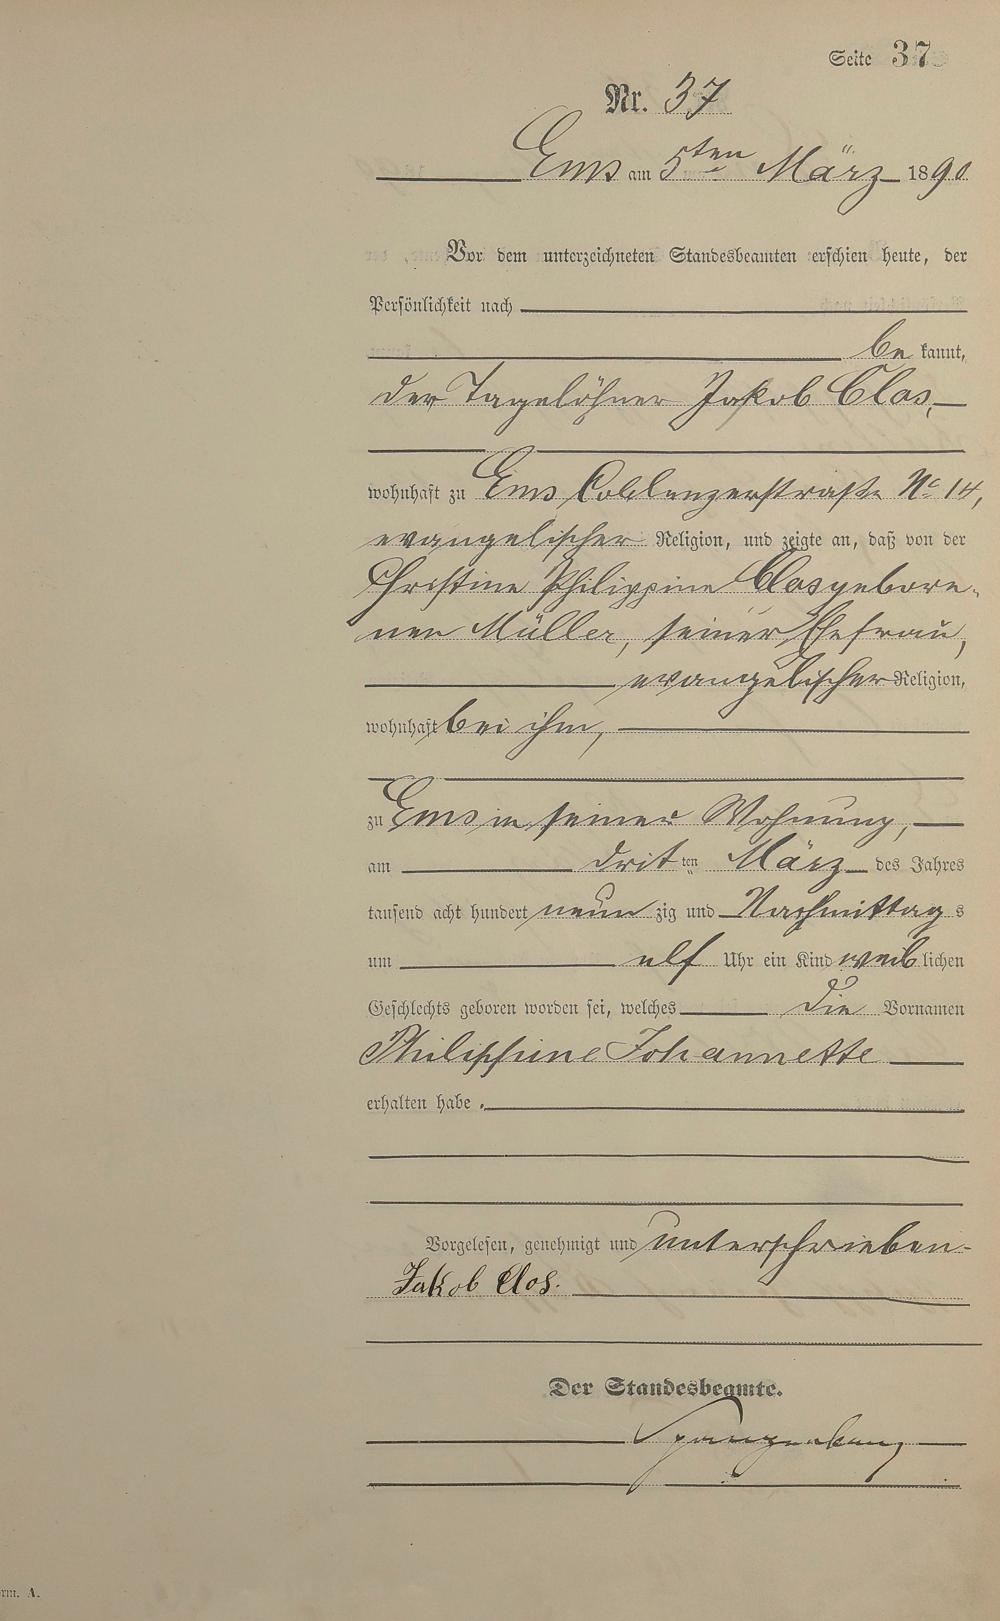 Seite 37
Nr. 37
Ems am 5ten März 1890
Vor dem unterzeichneten Standesbeamten erschien heute, der
Persönlichkeit nach
be kannt,
der Tagelöhner Jakob Clos,
wohnhaft zu Ems Coblenzerstraße No 14,
evangelischer Religion, und zeigte an, daß von der
Christine Philippine Clos gebore-
nen Müller, seiner Ehefrau,
evangelischer Religion,
wohnhaft bei ihm,
zu Ems in seiner Wohnung,
am dritten März des Jahres
tausend acht hundert neun zig und Nachmittag s
um elf Uhr ein Kind weiblichen
Geschlechts geboren worden sei, welches die Vornamen
Philippine Johannette
erhalten habe.
Vorgelesen, genehmigt und unterschrieben
Jakob Clos.
Der Standesbeamte.
rm. A.